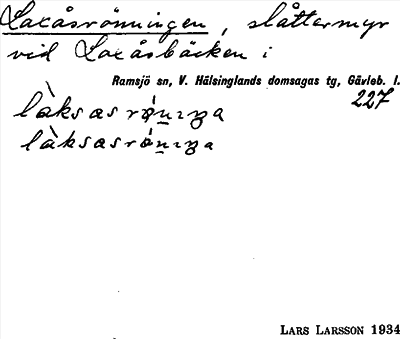 Laxåsrönningen, slåttermyr
vid Laxåsbäcken i
Ramsjö sn, V. Hälsinglands domsagas tg, Gävleb. l.
227
làksasrǿnıŋa
làksasrǿnıŋa
LARS LARSSON 1934